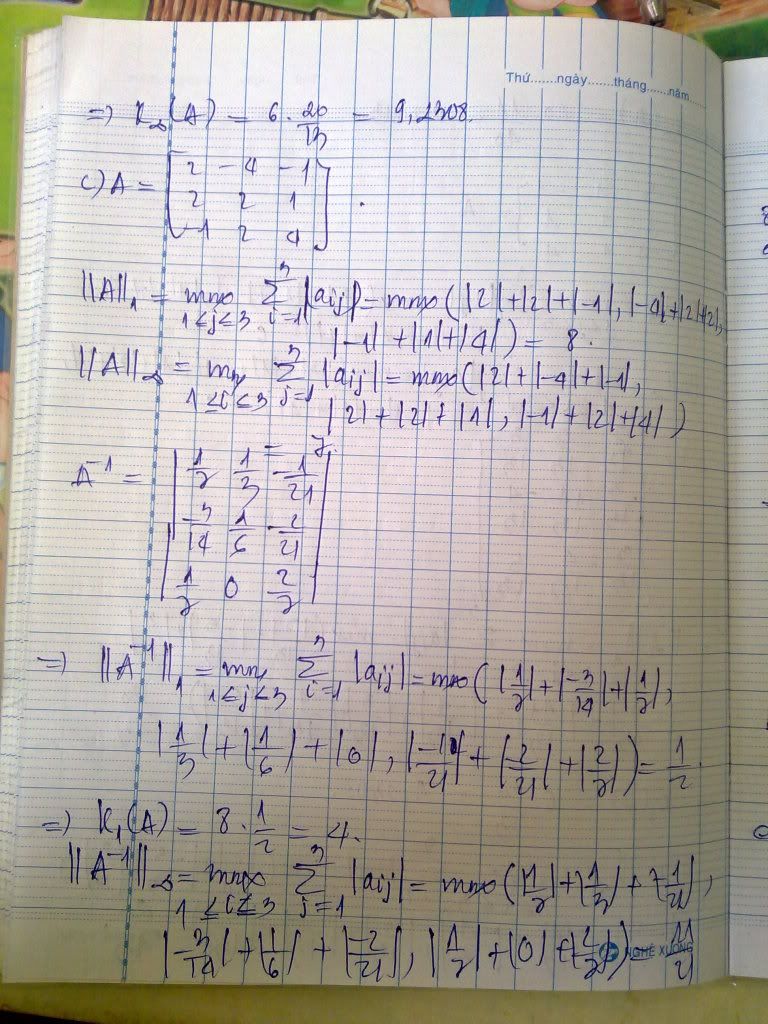 Thứ.......ngày.......tháng......năm....
=> K∞(A) = 6 . 20/13 = 9,2308
c) A = [ 2 -4 -1
2 2 1
-1 2 4 ] .
||A||₁ = max 1≤j≤3 Σ³ᵢ₌₁ |aij| = max(|2|+|2|+|-1|, |-4|+|2|+|2|,
|-1| + |1| + |4|) = 8.
||A||∞ = max 1≤i≤3 Σ³ⱼ₌₁ |aij| = max(|2|+|-4|+|-1|,
|2| + |2| + |1|, |-1| + |2| + |4|)
= 7.
A⁻¹ = [ 1/7 1/3 -1/21
-3/14 1/6 -2/21
1/7 0 2/7 ]
=> ||A⁻¹||₁ = max 1≤j≤3 Σ³ᵢ₌₁ |aij| = max(|1/7| + |-3/14| + |1/7|,
|1/3| + |1/6| + |0|, |-1/21| + |-2/21| + |2/7|) = 1/2.
=> K₁(A) = 8 . 1/2 = 4.
||A⁻¹||∞ = max 1≤i≤3 Σ³ⱼ₌₁ |aij| = max(|1/7| + |1/3| + |-1/21|,
|-3/14| + |1/6| + |-2/21|, |1/7| + |0| + |2/7|) = 11/21
NGHỆ XƯƠNG